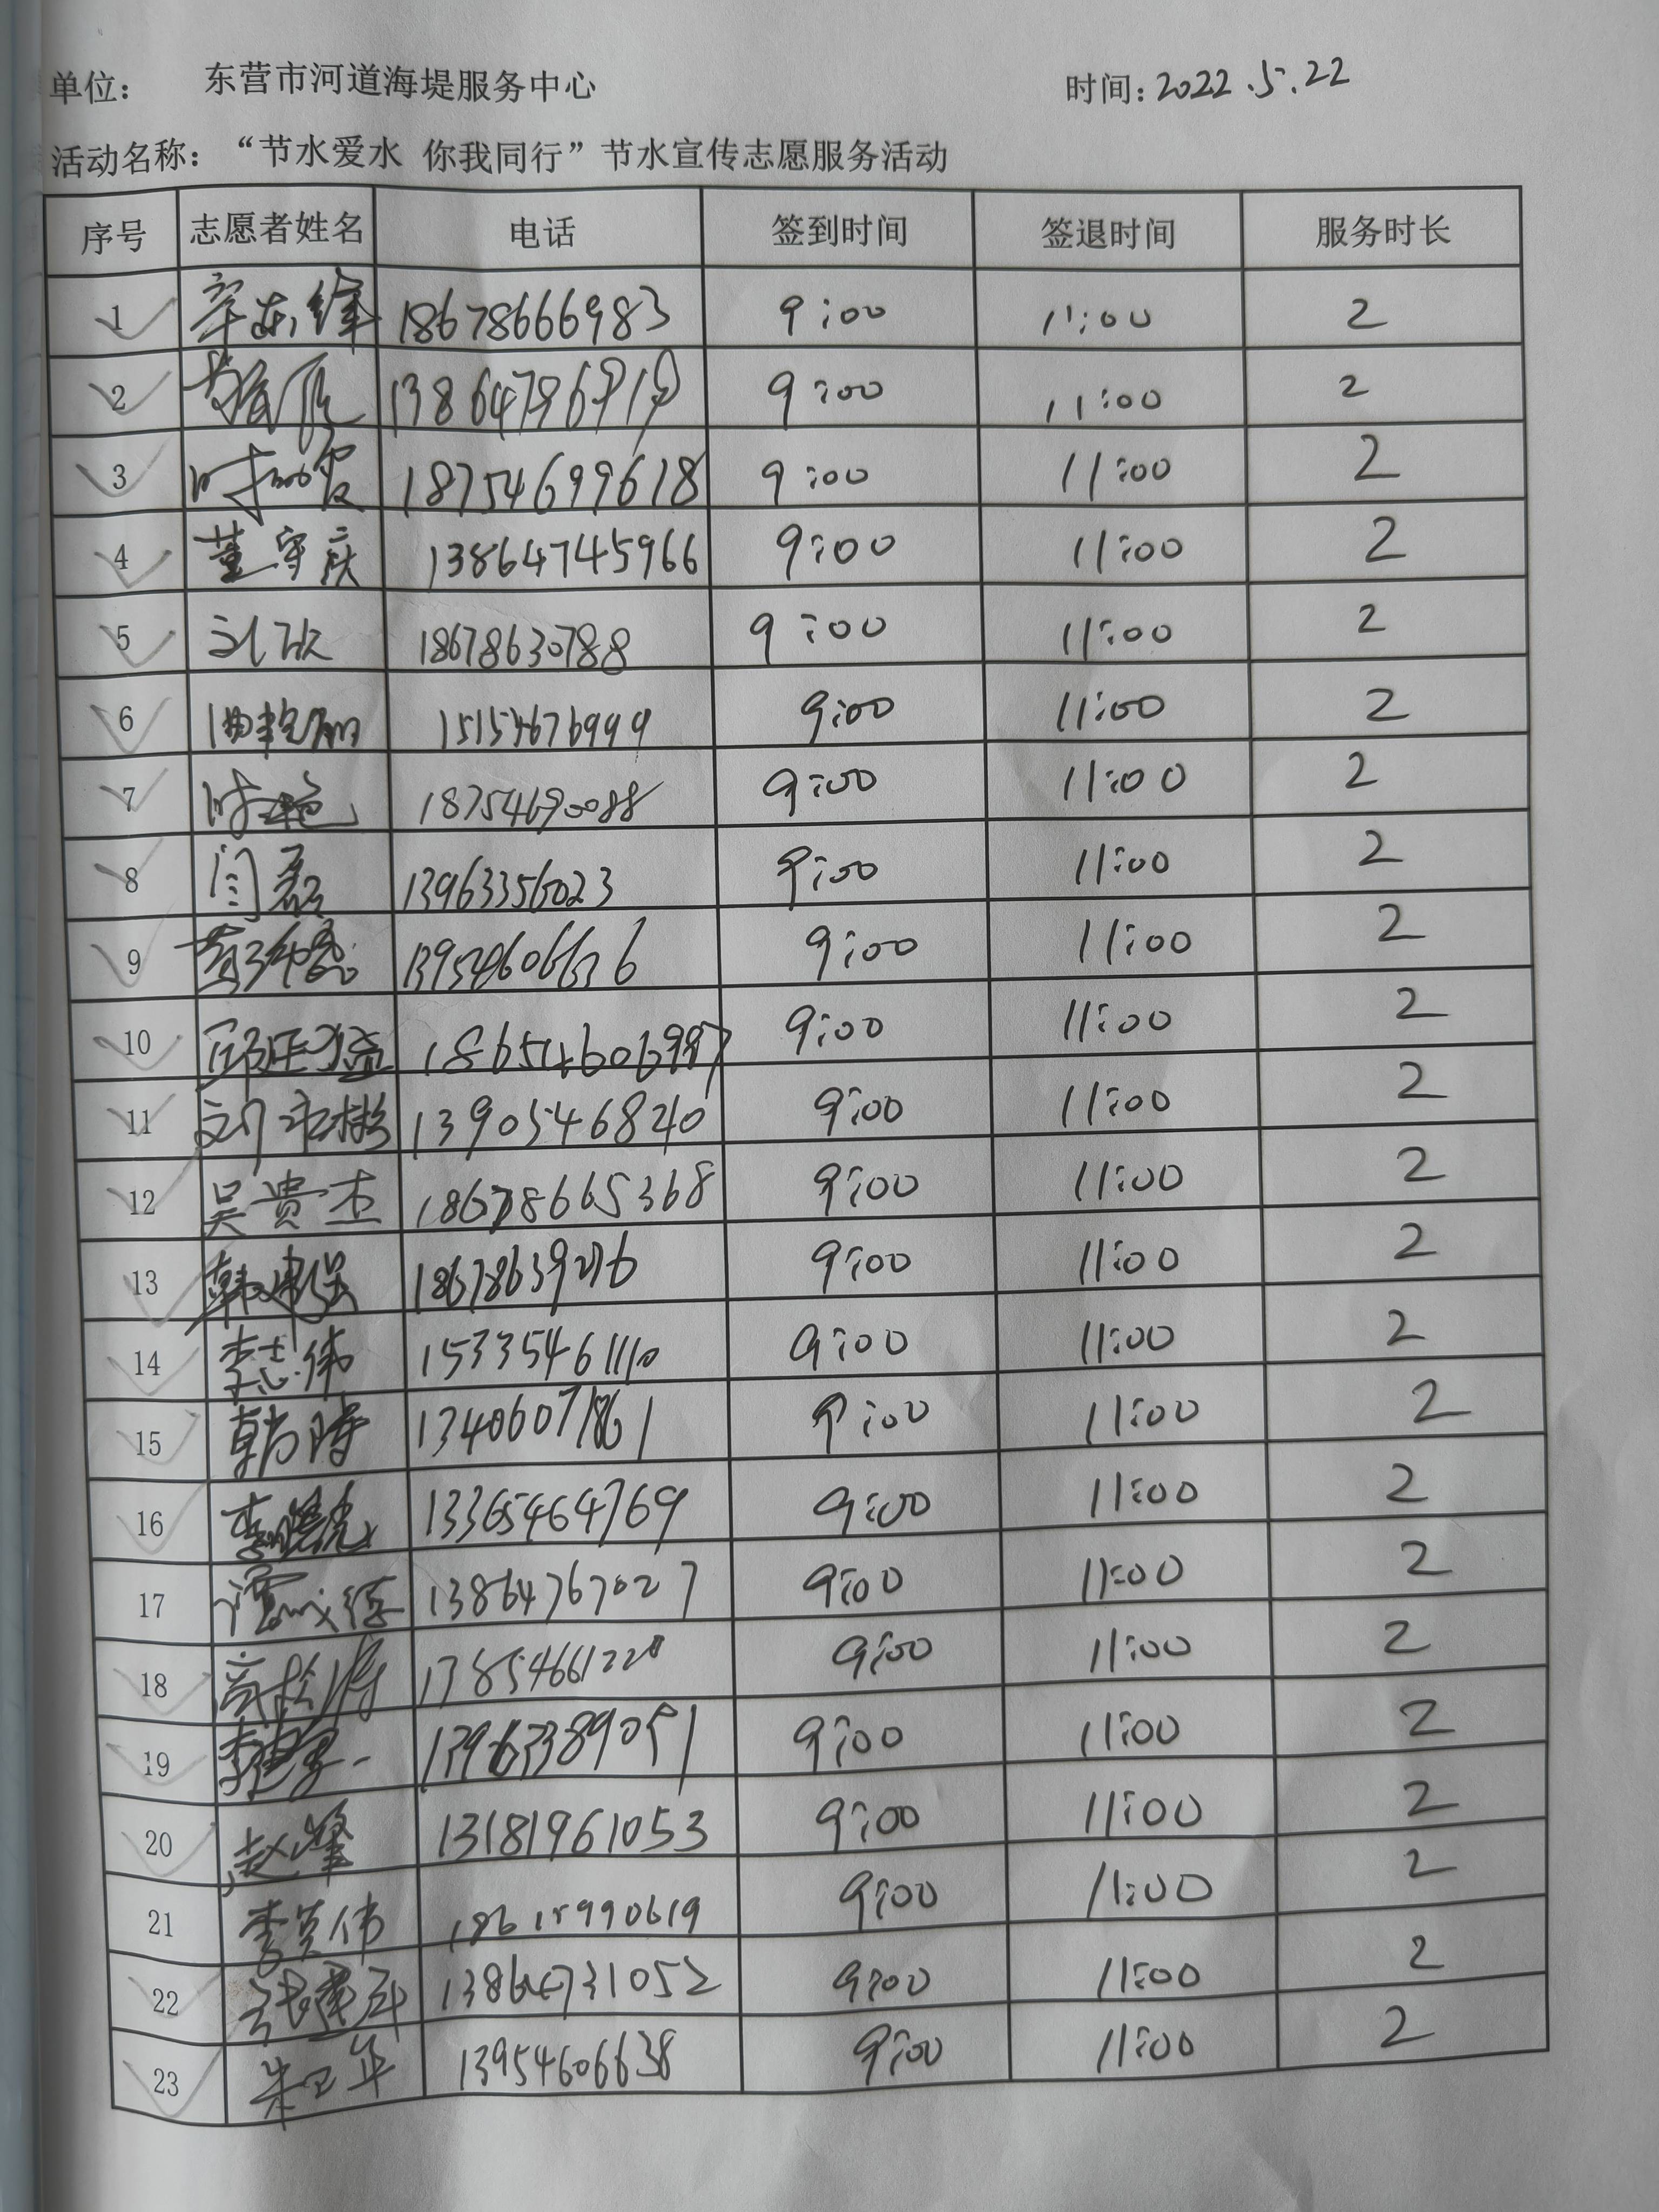 单位： 东营市河道海堤服务中心 时间：2022.5.22
活动名称：“节水爱水 你我同行”节水宣传志愿服务活动
序号 志愿者姓名 电话 签到时间 签退时间 服务时长
1 18678666983 9:00 11:00 2
2 9:00 11:00 2
3 18754699618 9:00 11:00 2
4 董守庆 13864745966 9:00 11:00 2
5 刘欣 18678630788 9:00 11:00 2
6 曲艳丽 15154676999 9:00 11:00 2
7 时艳 18754690088 9:00 11:00 2
8 闫磊 13963356023 9:00 11:00 2
9 9:00 11:00 2
10 9:00 11:00 2
11 13905468210 9:00 11:00 2
12 吴贵杰 18678665368 9:00 11:00 2
13 韩建强 9:00 11:00 2
14 李志伟 15335461110 9:00 11:00 2
15 13406071861 9:00 11:00 2
16 13365464769 9:00 11:00 2
17 13864767027 9:00 11:00 2
18 17854661220 9:00 11:00 2
19 13963389051 9:00 11:00 2
20 赵峰 13181961053 9:00 11:00 2
21 李英伟 18615990619 9:00 11:00 2
22 13864731052 9:00 11:00 2
23 朱卫华 13954606638 9:00 11:00 2